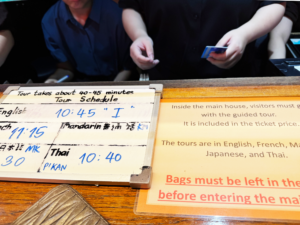 Tour takes about 40-45 minutes
Tour Schedule
English 10:45 "I"
11:15 Mandarin
30 MK Thai 10:40
P'KAN
Inside the main house, visitors must
with the guided tour.
It is included in the ticket price.
The tours are in English, French,
Japanese, and Thai.
Bags must be left in the
before entering the